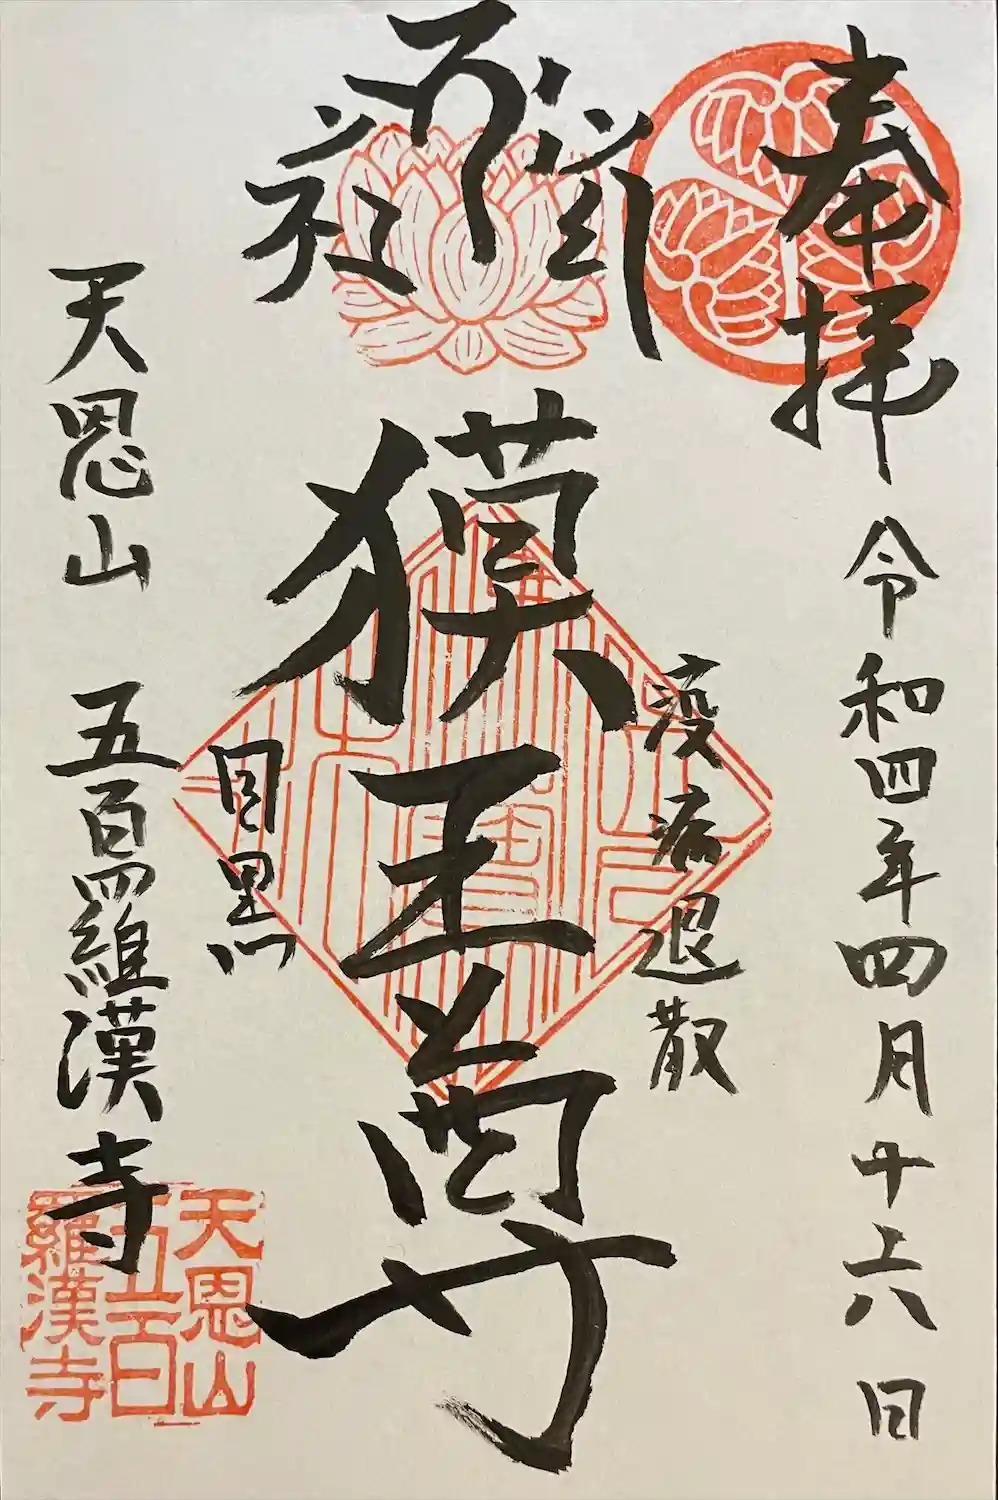 奉拝
令和四年四月十六日
疫病退散
獏王尊
目黒
天恩山 五百羅漢寺
天恩山
五百
羅漢寺